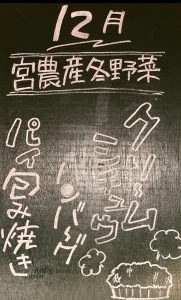 12月
宮農産冬野菜
クリーム
シチュウ
ハンバーグ
パイ包み焼き